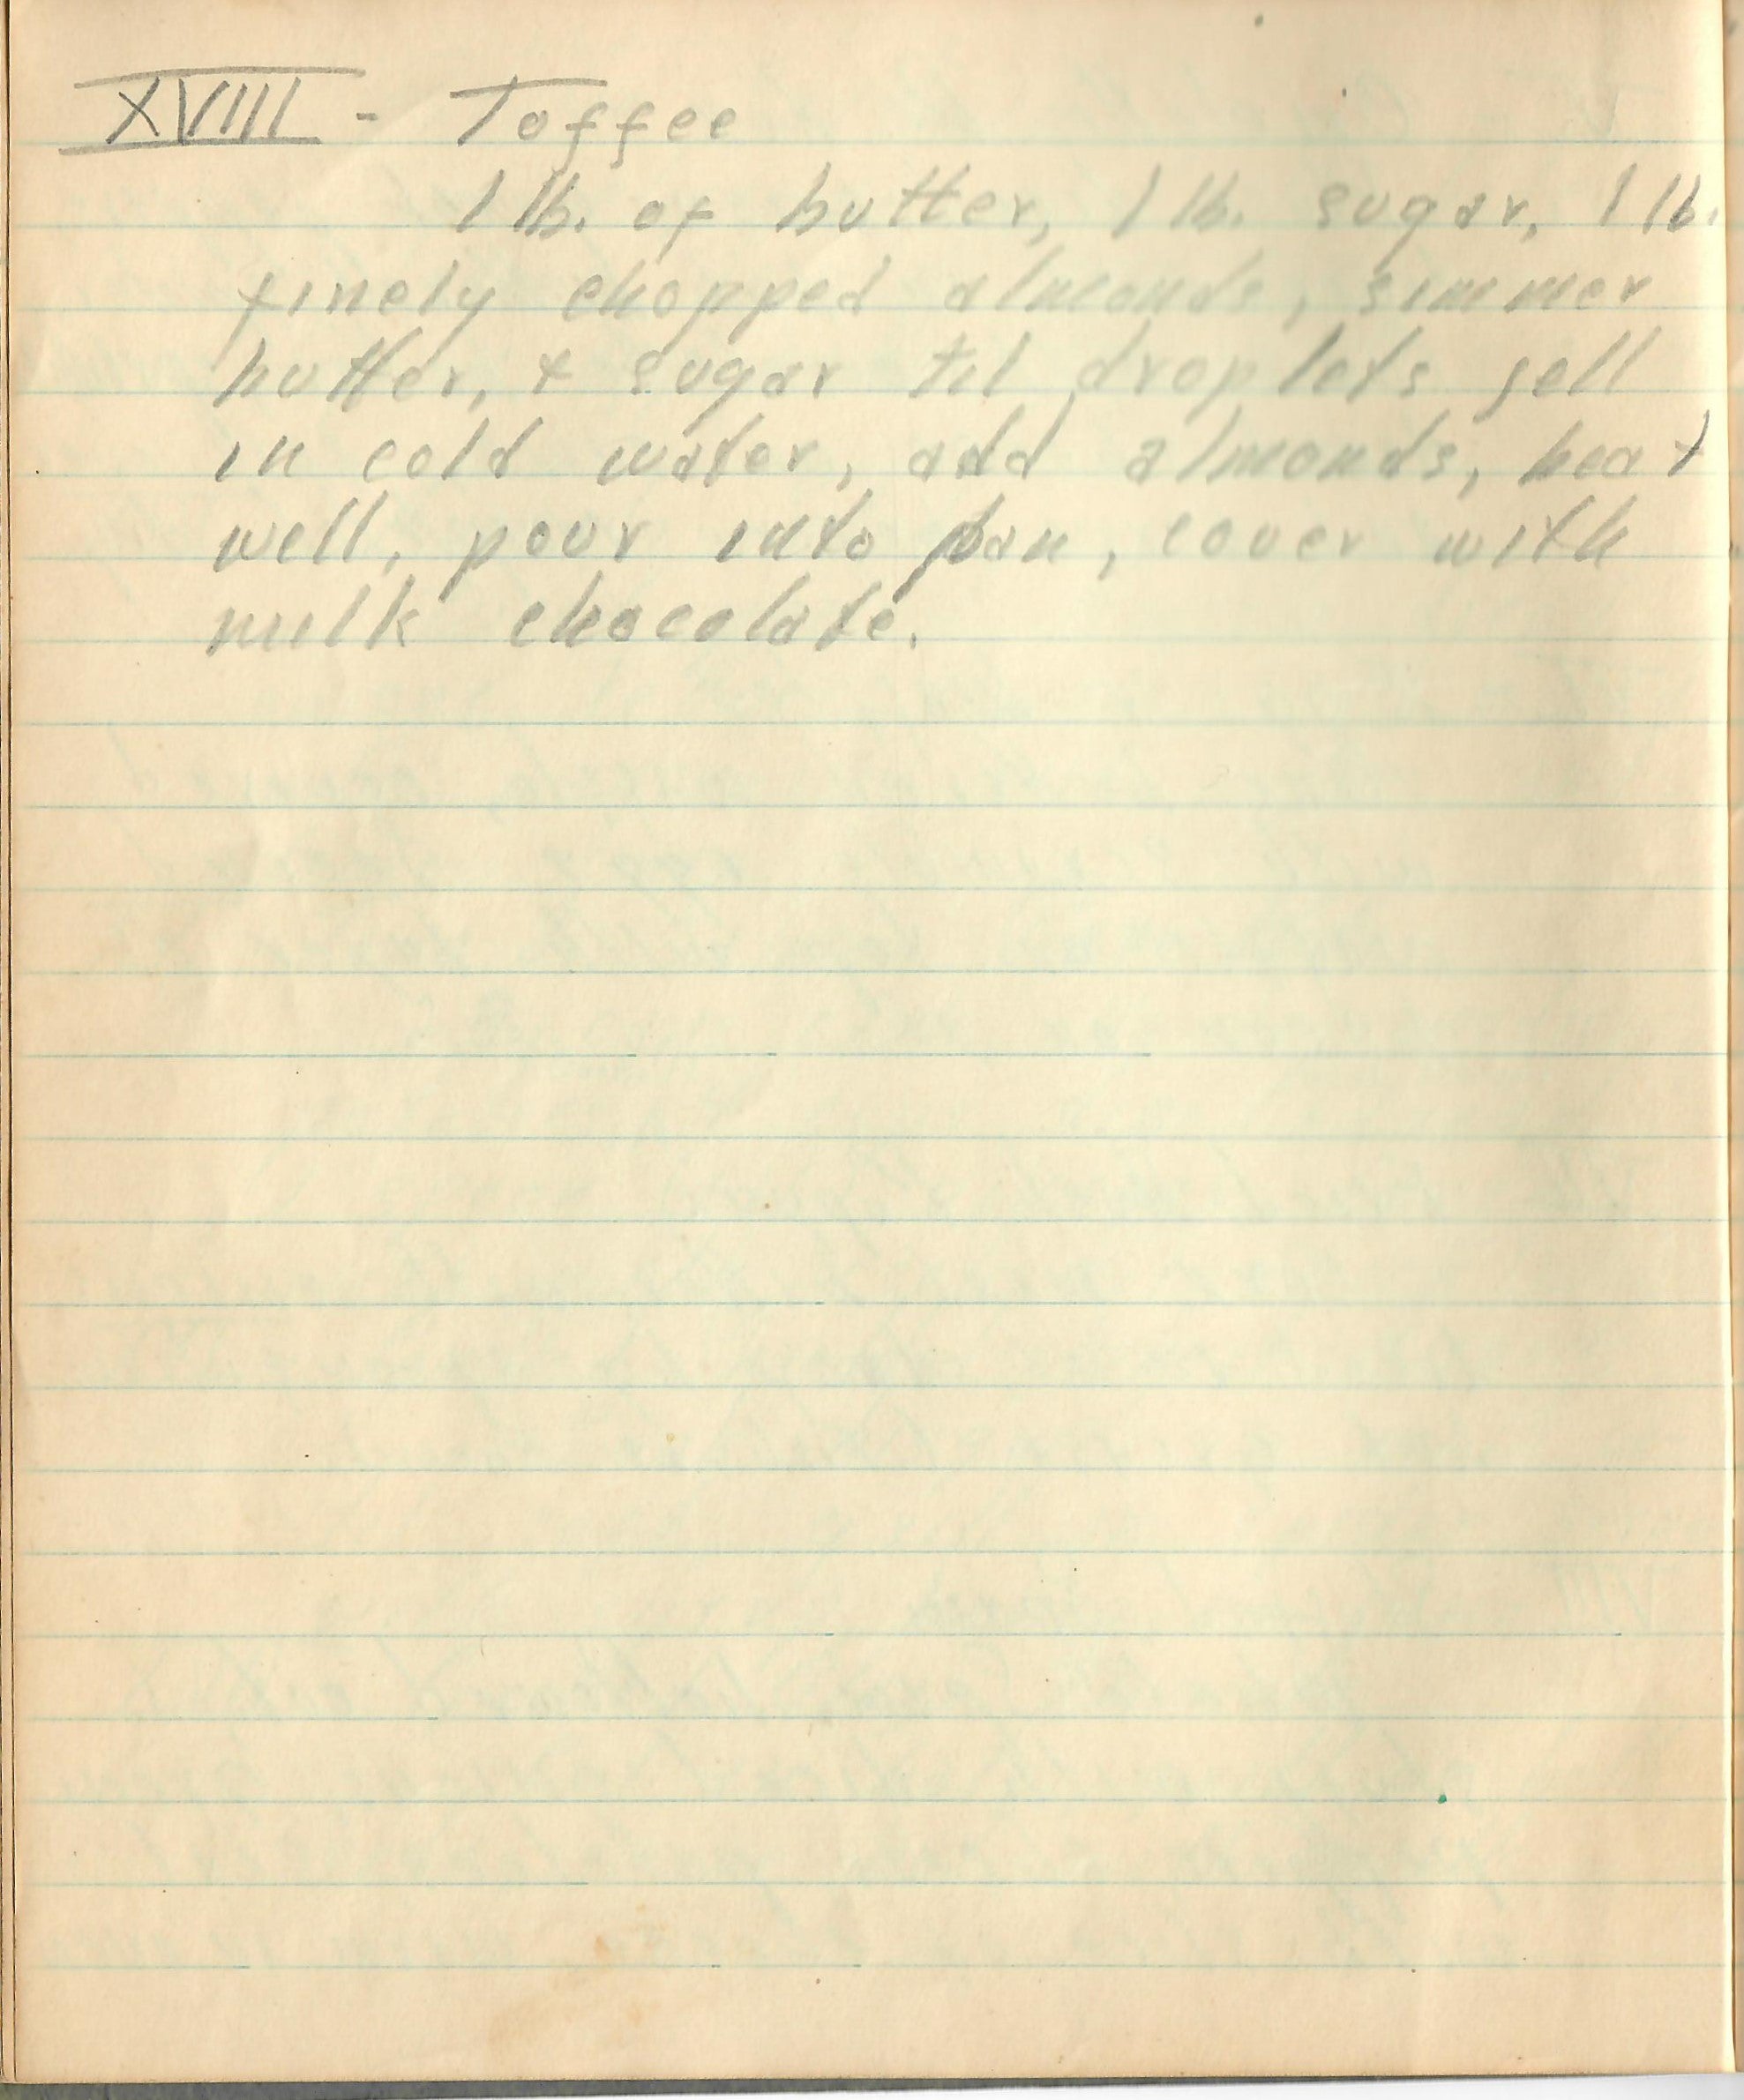 XVIII - Toffee
1 lb. of butter, 1 lb. sugar, 1 lb.
finely chopped almonds, simmer
butter, & sugar til droplets jell
in cold water, add almonds, heat
well, pour into pan, cover with
milk chocolate.